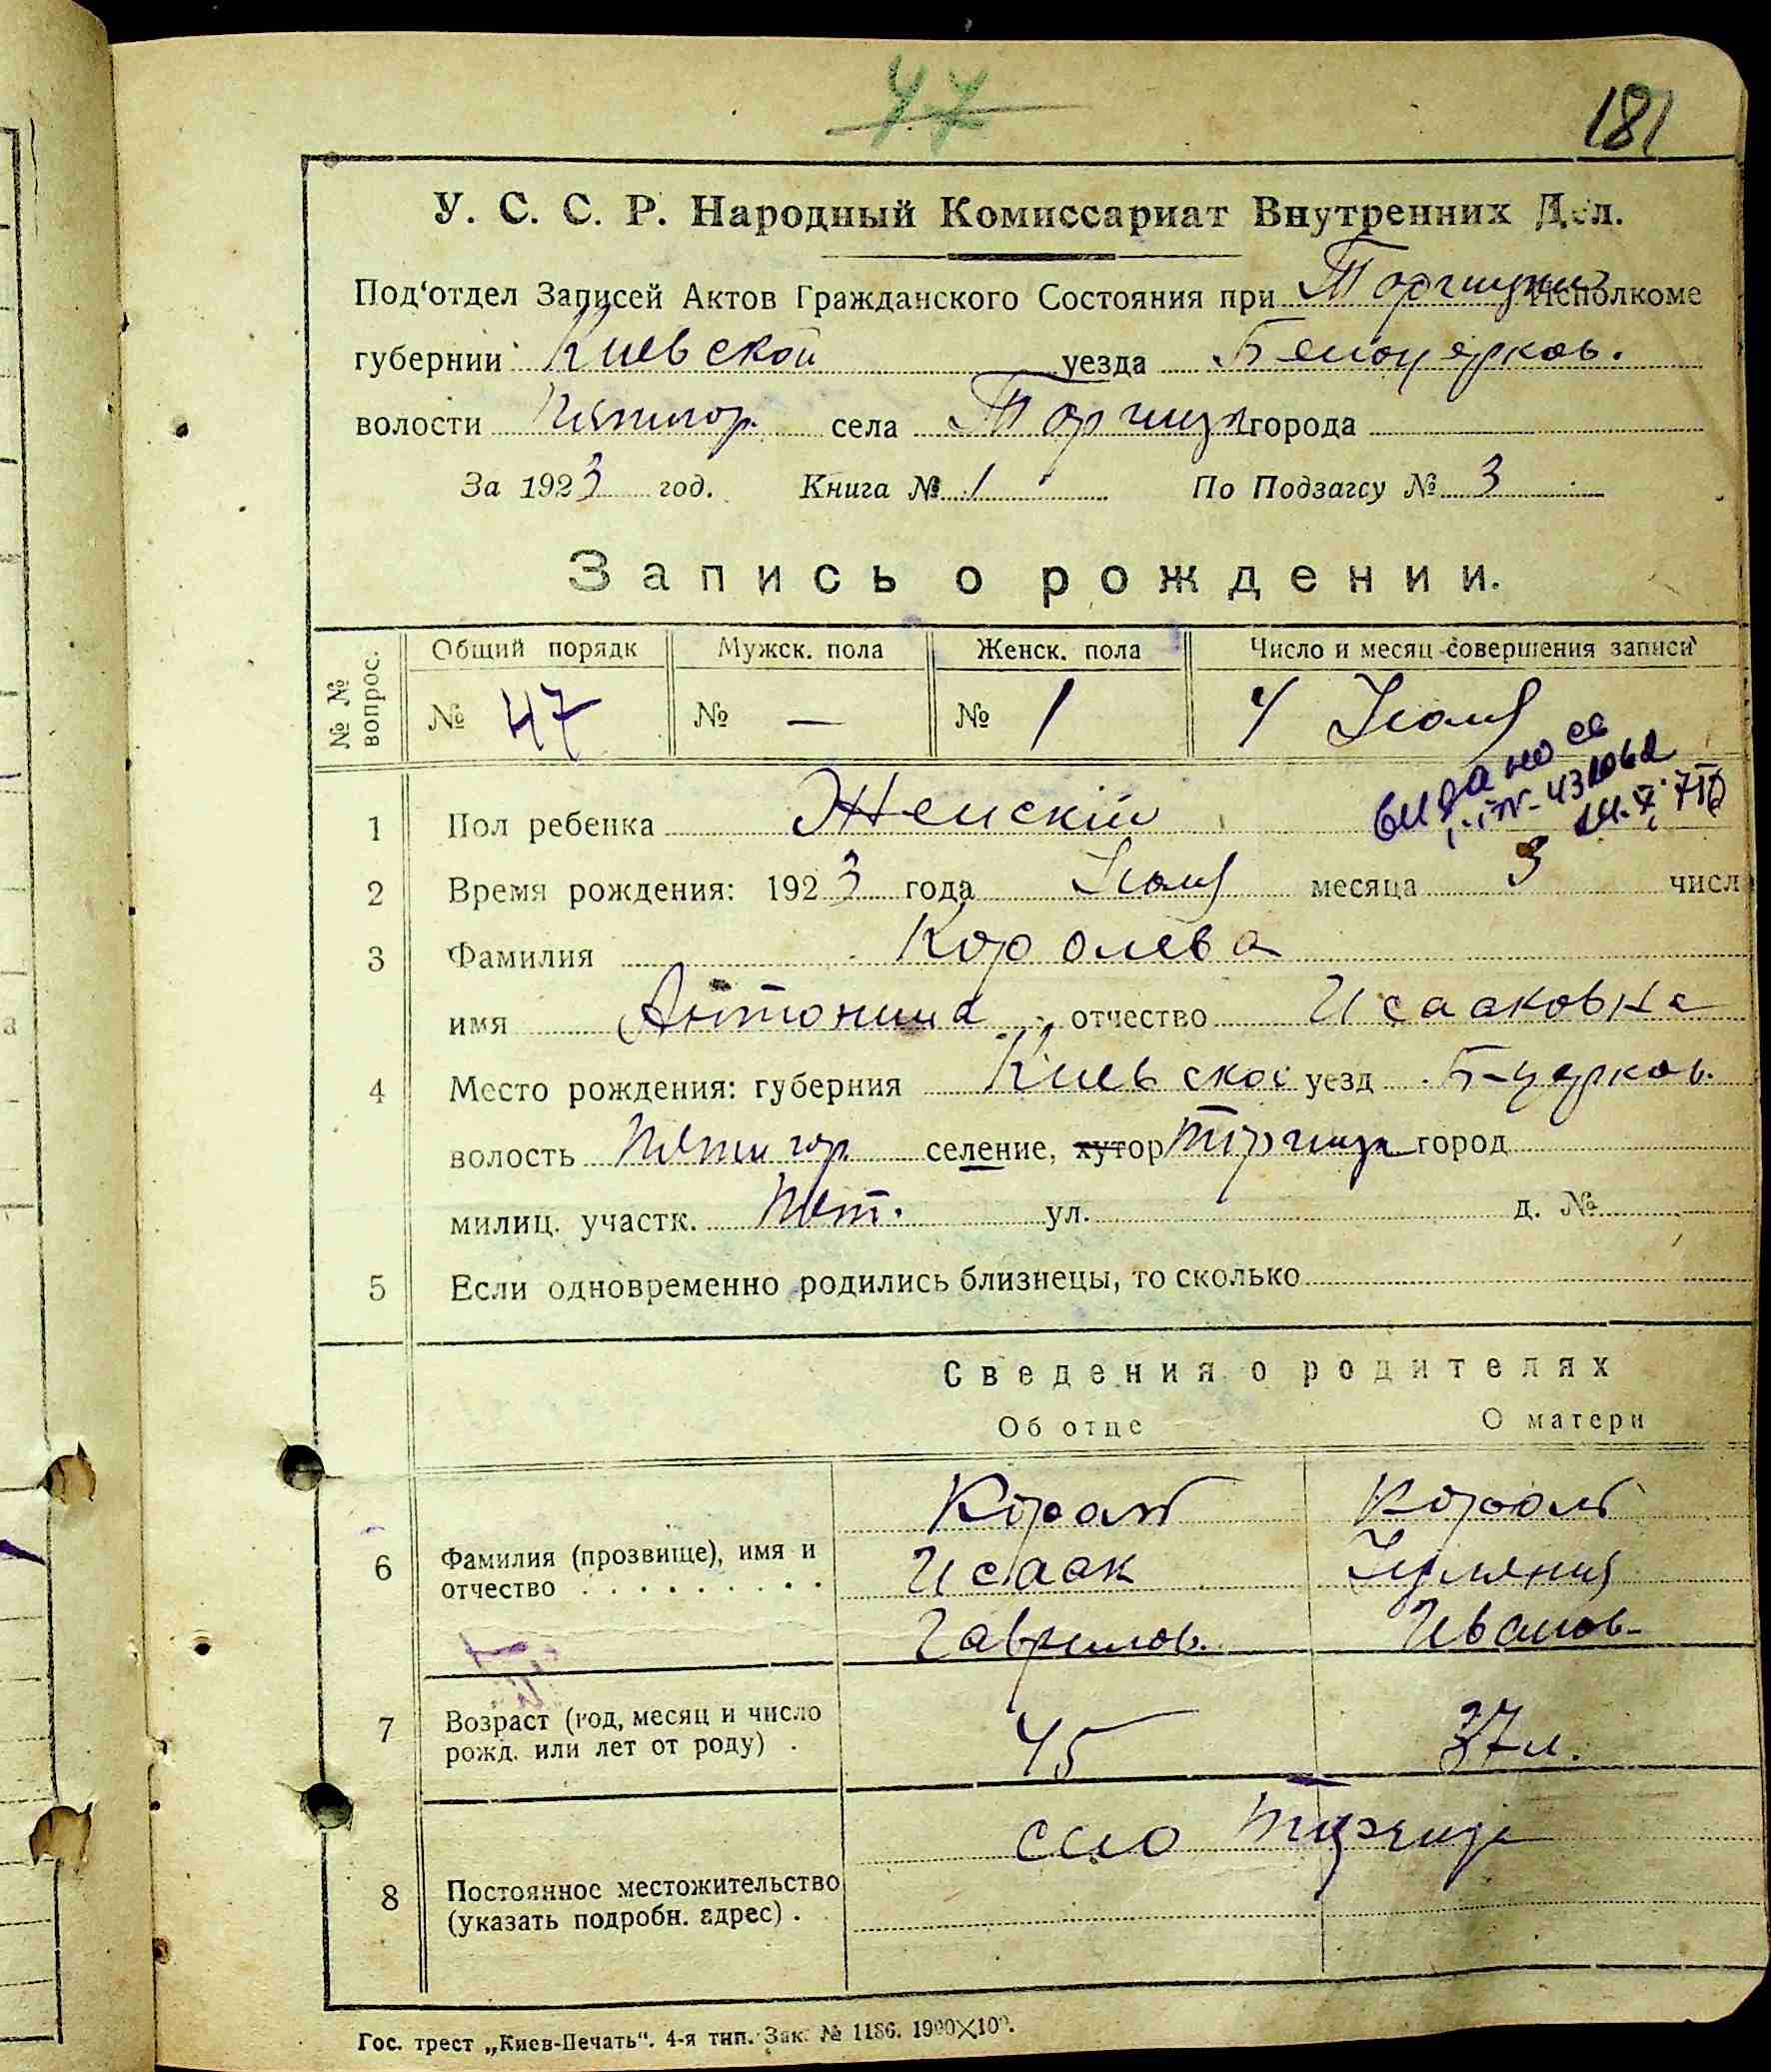 47
181
У. С. С. Р. Народный Комиссариат Внутренних Дел.
Под'отдел Записей Актов Гражданского Состояния при Исполкоме
губернии Киевской уезда Белоцерков.
волости Пятигор. села Торчица города
За 1923 год. Книга № 1 По Подзагсу № 3
Запись о рождении.
№ № вопрос.
Общий порядк Мужск. пола Женск. пола Число и месяц совершения записи
№ 47 № — № 1 4 Июля
видано св
431062
1 Пол ребенка Женскій
2 Время рождения: 1923 года Июля месяца 3 числ
3 Фамилия Королева
имя Антонина отчество Исааковна
4 Место рождения: губерния Киевское уезд Б-церков.
волость Пятигор селение, хутор Торчица город
милиц. участк. Пят. ул. д. №
5 Если одновременно родились близнецы, то сколько
Сведения о родителях
Об отце О матери
6 Фамилия (прозвище), имя и отчество . . . . . . . . . .
Король Король
Исаак
Гаврилов. Иванов-
7 Возраст (год, месяц и число рожд. или лет от роду) .
45 37 л.
8 Постоянное местожительство (указать подробн. адрес) .
село Торчица
Гос. трест „Киев-Печать“. 4-я тип. Зак. № 1186. 1900×100.